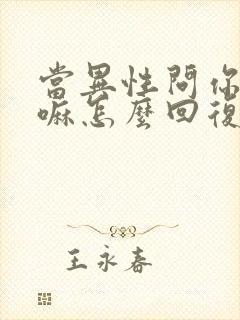 當異性問你
嘛怎麼回復
王永春